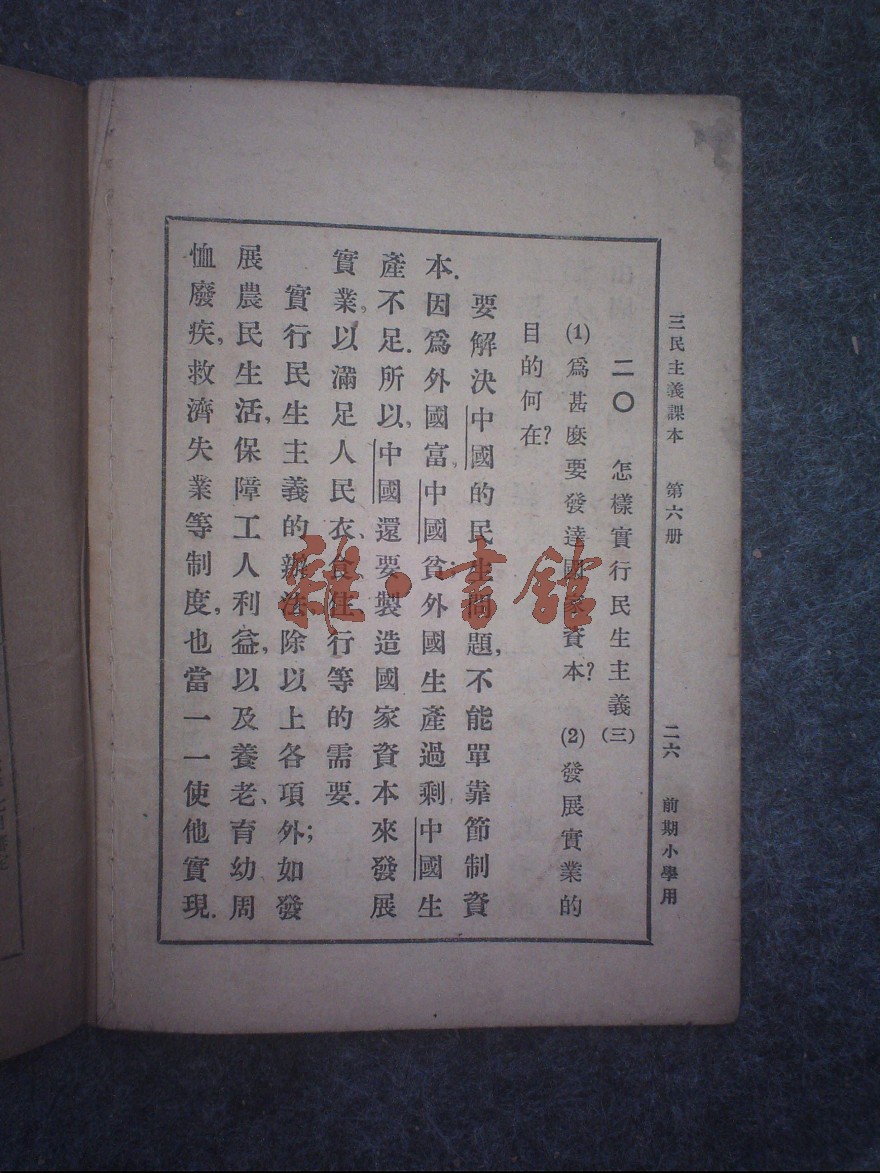 三民主義課本　第六册　二六　前期小學用
二〇　怎樣實行民生主義(三)
(1)爲甚麽要發達國家資本?　(2)發展實業的
目的何在?
要解決中國的民生問題,不能單靠節制資
本.因爲外國富,中國貧外國生產過剩,中國生
產不足.所以,中國還要製造國家資本來發展
實業,以滿足人民衣、食、住、行等的需要.
實行民生主義的辦法,除以上各項外;如發
展農民生活,保障工人利益,以及養老、育幼、周
恤廢疾,救濟失業等制度,也當一一使他實現.
雜·書館